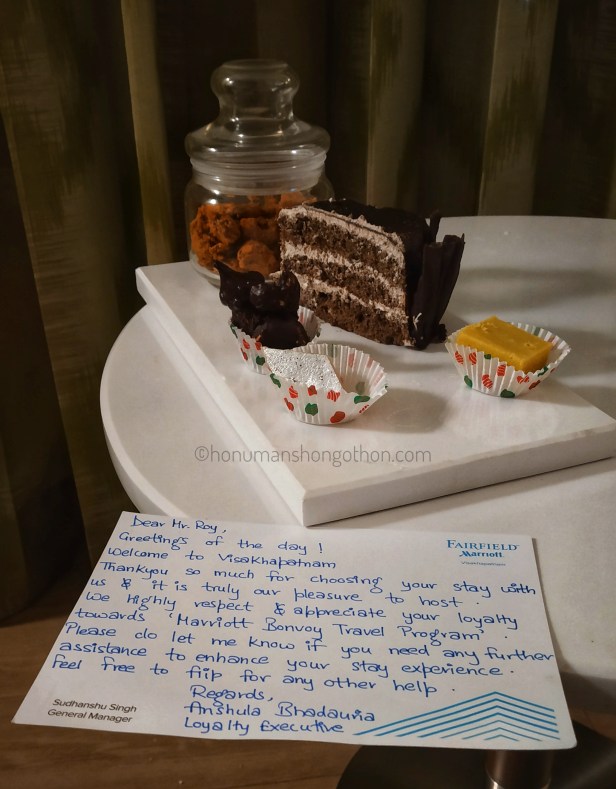 ©honumanshongothon.com
Dear Mr. Roy,
Greetings of the day !
Welcome to Visakhapatnam
Thankyou so much for choosing your stay with
us & it is truly our pleasure to host.
We Highly respect & appreciate your loyalty
towards 'Marriott Bonvoy Travel Program'.
Please do let me know if you need any further
assistance to enhance your stay experience.
Feel free to flip for any other help.
Regards,
Anshula Bhadauria
Loyalty Executive
FAIRFIELD
Marriott
Visakhapatnam
Sudhanshu Singh
General Manager